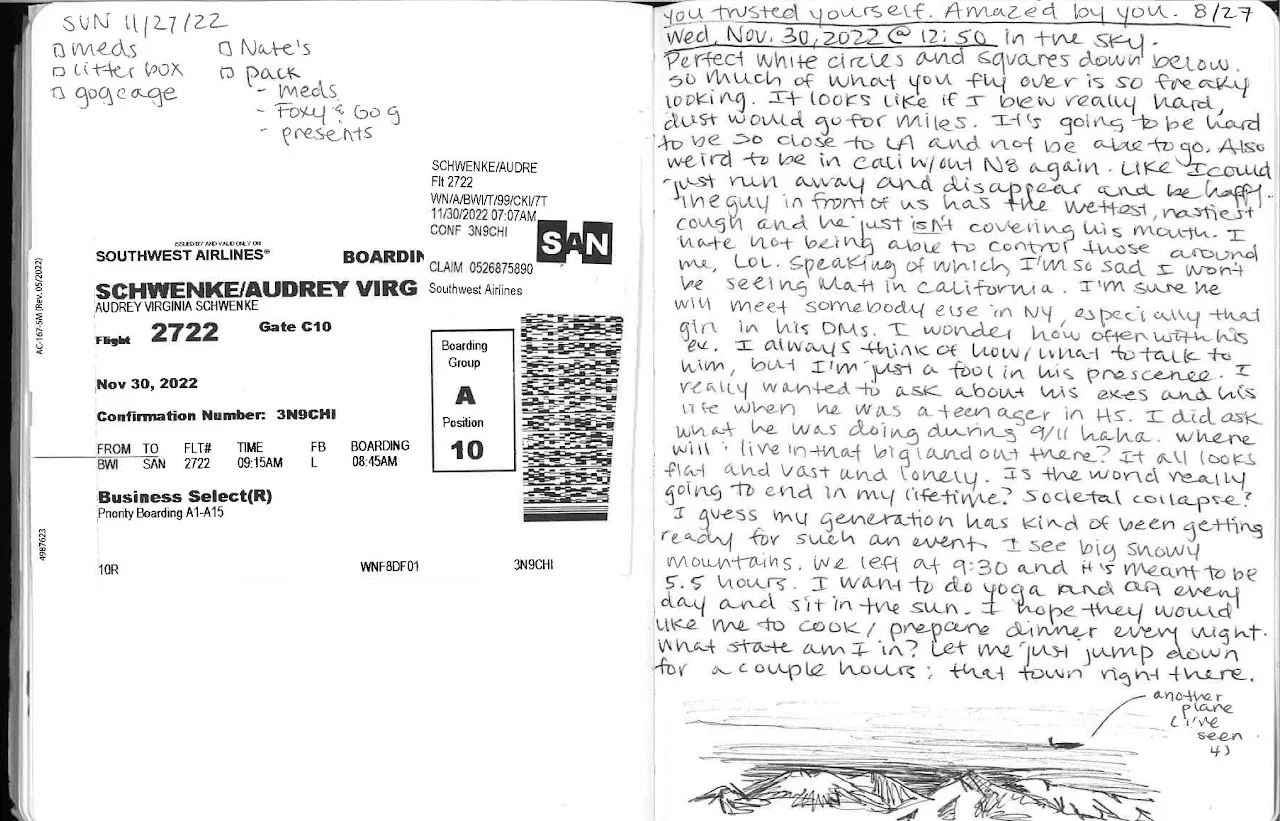 SUN 11/27/22
□ meds
□ litter box
□ gogcage
□ Nate's
□ pack
- meds
- Foxy & Gog
- presents
SCHWENKE/AUDRE
Flt 2722
WN/A/BWI/T/99/CKI/7T
11/30/2022 07:07AM
CONF 3N9CHI
SAN
CLAIM 0526875890
Southwest Airlines
AC-167-SM (Rev. 05/2022)
4987623
ISSUED BY AND VALID ONLY ON
SOUTHWEST AIRLINES® BOARDIN
SCHWENKE/AUDREY VIRG
AUDREY VIRGINIA SCHWENKE
Flight 2722 Gate C10
Nov 30, 2022
Confirmation Number: 3N9CHI
FROM TO FLT# TIME FB BOARDING
BWI SAN 2722 09:15AM L 08:45AM
Business Select(R)
Priority Boarding A1-A15
10R WNF8DF01 3N9CHI
Boarding
Group
A
Position
10
you trusted yourself. Amazed by you. 8/27
Wed, Nov. 30, 2022 @ 12:50 in the sky.
Perfect white circles and squares down below.
So much of what you fly over is so freaky
looking. It looks like if I blew really hard,
dust would go for miles. It's going to be hard
to be so close to LA and not be able to go. Also
weird to be in Cali w/out N8 again. Like I could
just run away and disappear and be happy.
The guy in front of us has the wettest, nastiest
cough and he just isn't covering his mouth. I
hate not being able to control those around
me, LOL. Speaking of which, I'm so sad I won't
be seeing Matt in California. I'm sure he
will meet somebody else in NY, especially that
girl in his DMs. I wonder how often with his
ex. I always think of how/what to talk to
him, but I'm just a fool in his prescence. I
really wanted to ask about his exes and his
life when he was a teenager in HS. I did ask
what he was doing during 9/11 haha. Where
will i live in that big land out there? It all looks
flat and vast and lonely. Is the world really
going to end in my lifetime? Societal collapse?
I guess my generation has kind of been getting
ready for such an event. I see big snowy
mountains. We left at 9:30 and it's meant to be
5.5 hours. I want to do yoga and every
day and sit in the sun. I hope they would
like me to cook/prepare dinner every night.
What state am I in? Let me just jump down
for a couple hours: that town right there.
another
plane
(i've
seen
4)